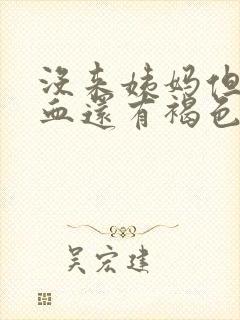 没来姨妈但
血还有褐色
吴宏建